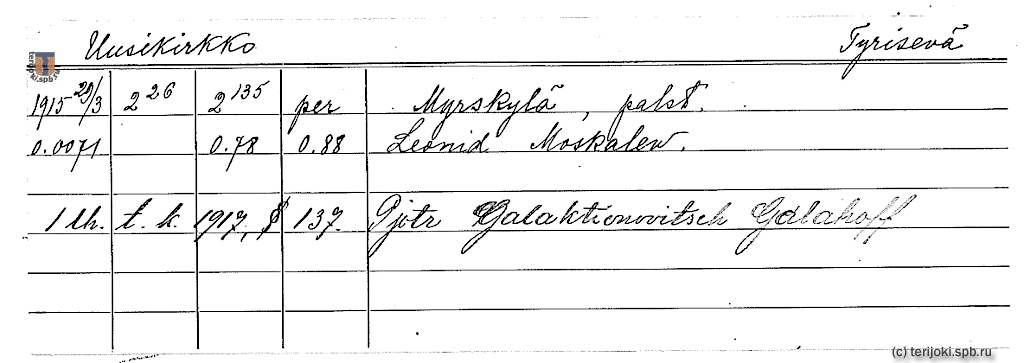 Uusikirkko Tyrisevä
1915 29/3 2 26 2 135 per Myrskylä, palst.
0.0071 0.78 0.88 Leonid Moskalew.
1 lh. t. k. 1917, § 137. Pjotr Galaktionovitsch Galahoff
terijoki.spb.ru
(c) terijoki.spb.ru